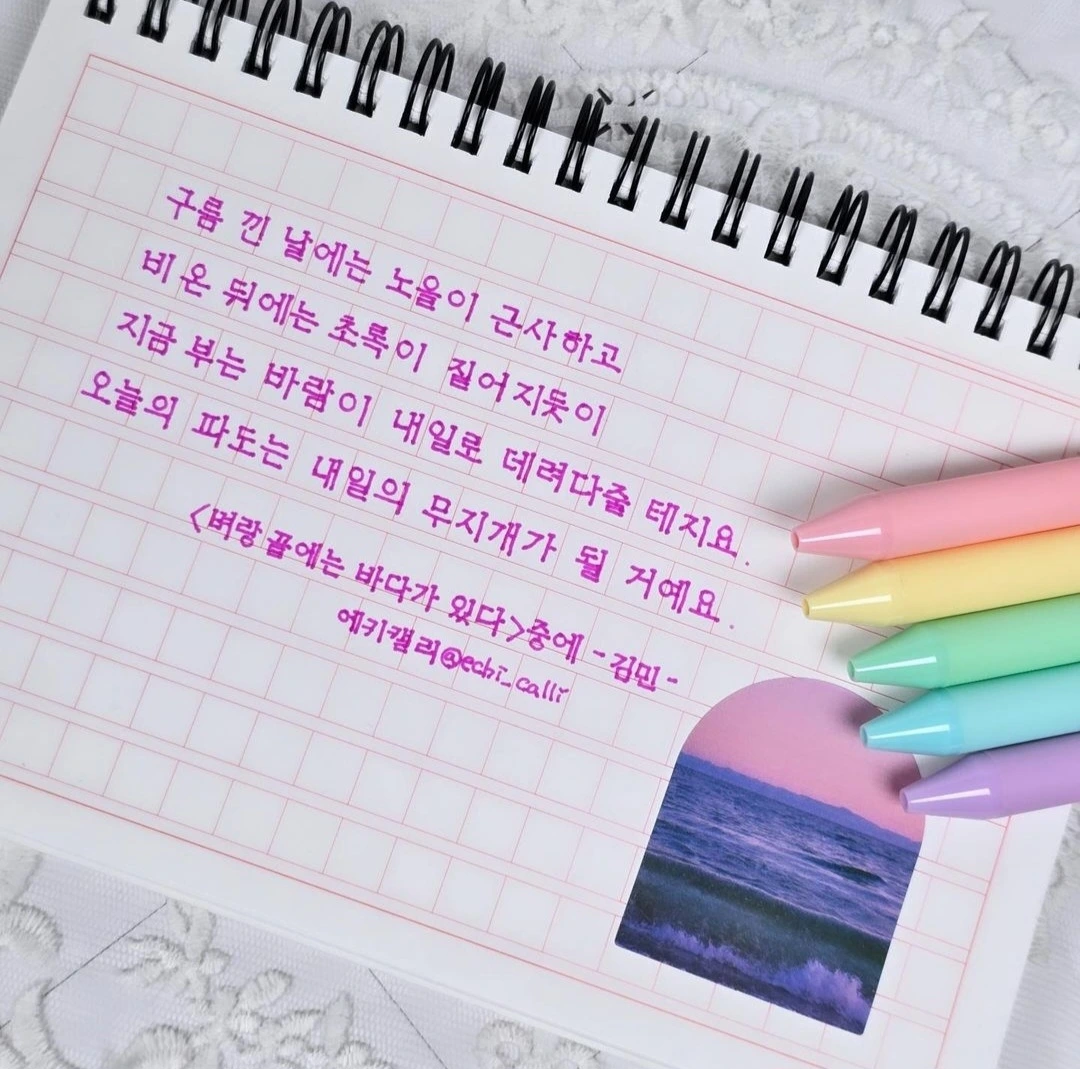 구름 낀 날에는 노을이 근사하고
비 온 뒤에는 초록이 짙어지듯이
지금 부는 바람이 내일로 데려다줄 테지요.
오늘의 파도는 내일의 무지개가 될 거예요.
<벼랑 끝에는 바다가 있다>중에 -김민-
에키캘리@echi_calli